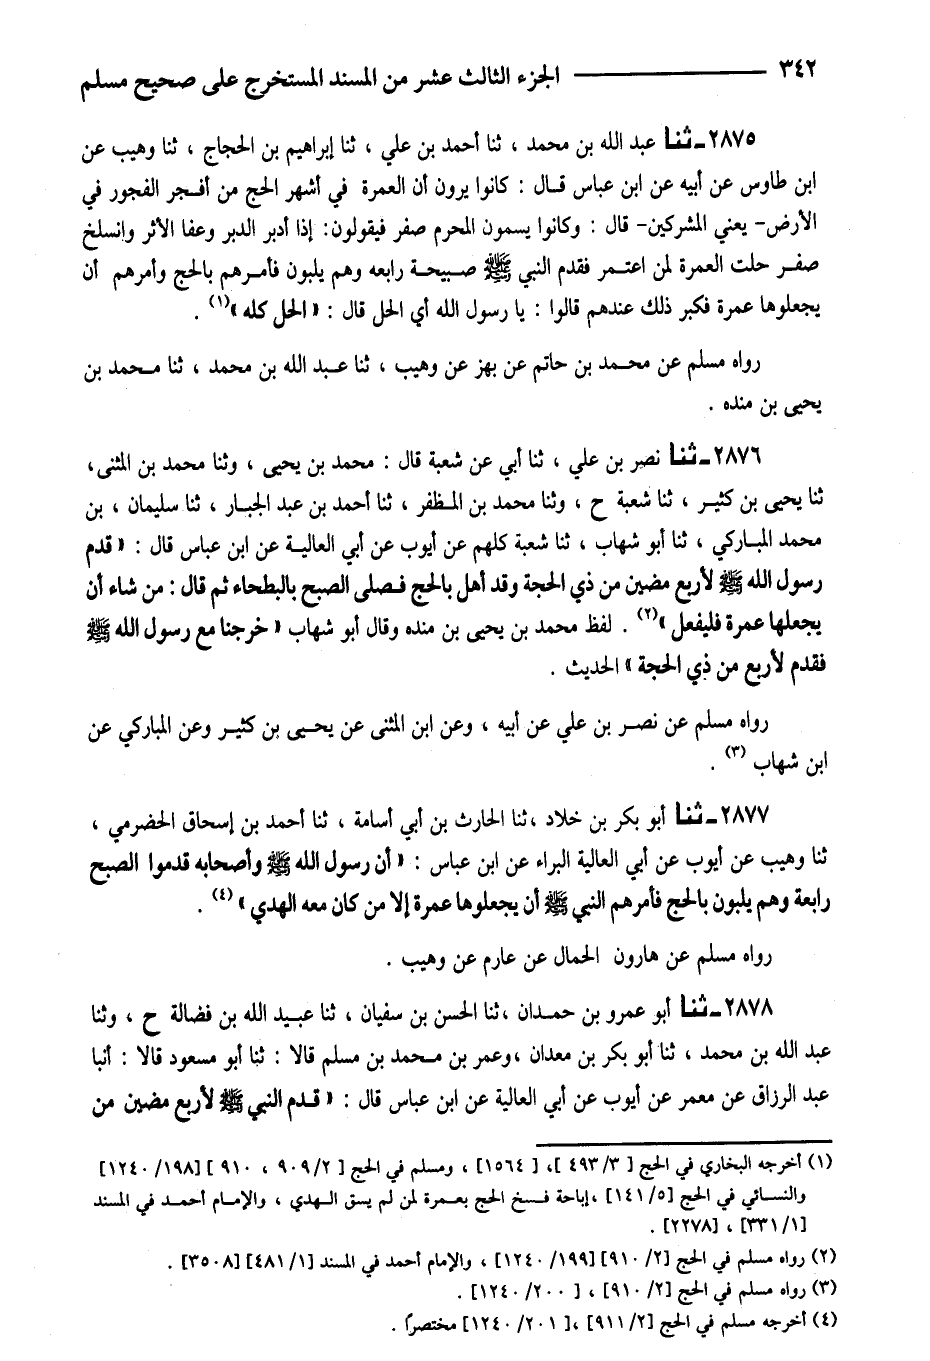 ٣٤٢ ــــــــــــ الجزء الثالث عشر من المسند المستخرج على صحيح مسلم
٢٨٧٥ـ ثنا عبد الله بن محمد ، ثنا أحمد بن علي ، ثنا إبراهيم بن الحجاج ، ثنا وهيب عن
ابن طاوس عن أبيه عن ابن عباس قال : كانوا يرون أن العمرة في أشهر الحج من أفجر الفجور في
الأرض- يعني المشركين- قال : وكانوا يسمون المحرم صفر فيقولون: إذا أدبر الدبر وعفا الأثر وانسلخ
صفر حلت العمرة لمن اعتمر فقدم النبي ﷺ صبيحة رابعه وهم يلبون فأمرهم بالحج وأمرهم أن
يجعلوها عمرة فكبر ذلك عندهم قالوا : يا رسول الله أي الحل قال : « الحل كله »(١) .
رواه مسلم عن محمد بن حاتم عن بهز عن وهيب ، ثنا عبد الله بن محمد ، ثنا محمد بن
يحيى بن منده .
٢٨٧٦ـ ثنا نصر بن علي ، ثنا أبي عن شعبة قال : محمد بن يحيى ، وثنا محمد بن المثنى،
ثنا يحيى بن كثير ، ثنا شعبة ح ، وثنا محمد بن المظفر ، ثنا أحمد بن عبد الجبار ، ثنا سليمان ، بن
محمد المباركي ، ثنا أبو شهاب ، ثنا شعبة كلهم عن أيوب عن أبي العالية عن ابن عباس قال : « قدم
رسول الله ﷺ لأربع مضين من ذي الحجة وقد أهل بالحج فصلى الصبح بالبطحاء ثم قال : من شاء أن
يجعلها عمرة فليفعل »(٢) . لفظ محمد بن يحيى بن منده وقال أبو شهاب « خرجنا مع رسول الله ﷺ
فقدم لأربع من ذي الحجة » الحديث .
رواه مسلم عن نصر بن علي عن أبيه ، وعن ابن المثنى عن يحيى بن كثير وعن المباركي عن
ابن شهاب (٣) .
٢٨٧٧ـ ثنا أبو بكر بن خلاد ،ثنا الحارث بن أبي أسامة ، ثنا أحمد بن إسحاق الحضرمي ،
ثنا وهيب عن أيوب عن أبي العالية البراء عن ابن عباس : « أن رسول الله ﷺ وأصحابه قدموا الصبح
رابعة وهم يلبون بالحج فأمرهم النبي ﷺ أن يجعلوها عمرة إلا من كان معه الهدي »(٤) .
رواه مسلم عن هارون الحمال عن عارم عن وهيب .
٢٨٧٨ـ ثنا أبو عمرو بن حمدان ،ثنا الحسن بن سفيان ، ثنا عبيد الله بن فضالة ح ، وثنا
عبد الله بن محمد ، ثنا أبو بكر بن معدان ،وعمر بن محمد بن مسلم قالا : ثنا أبو مسعود قالا : أنبا
عبد الرزاق عن معمر عن أيوب عن أبي العالية عن ابن عباس قال : « قدم النبي ﷺ لأربع مضين من
(١) أخرجه البخاري في الحج [ ٣/ ٤٩٣ ]، [ ١٥٦٤] ، ومسلم في الحج [ ٢/ ٩٠٩ ، ٩١٠ ] [١٩٨/ ١٢٤٠]
والنسائي في الحج [٥/ ١٤١] ،إباحة فسخ الحج بعمرة لمن لم يسق الهدي ، والإمام أحمد في المسند
[١/ ٣٣١] ، [٢٢٧٨] .
(٢) رواه مسلم في الحج [٢/ ٩١٠] [١٩٩/ ١٢٤٠] ، والإمام أحمد في المسند [١/ ٤٨١] [٣٥٠٨] .
(٣) رواه مسلم في الحج [٢/ ٩١٠] ، [ ٢٠٠/ ١٢٤٠] .
(٤) أخرجه مسلم في الحج [٢/ ٩١١] ،[ ٢٠١/ ١٢٤٠] مختصراً .